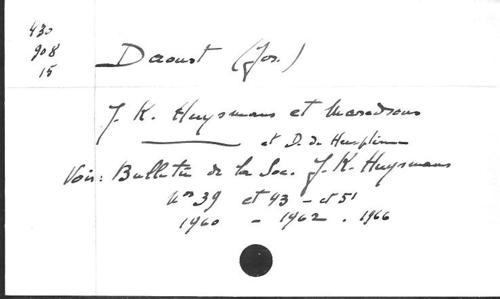 430
908
15
Daoust (Jos.)
J. K. Huysmans et Maredsous
et D. de Hemptinne
Voir : Bulletin de la Soc. J. K. Huysmans
Nos 39 et 43 - et 51
1960 - 1962 . 1966